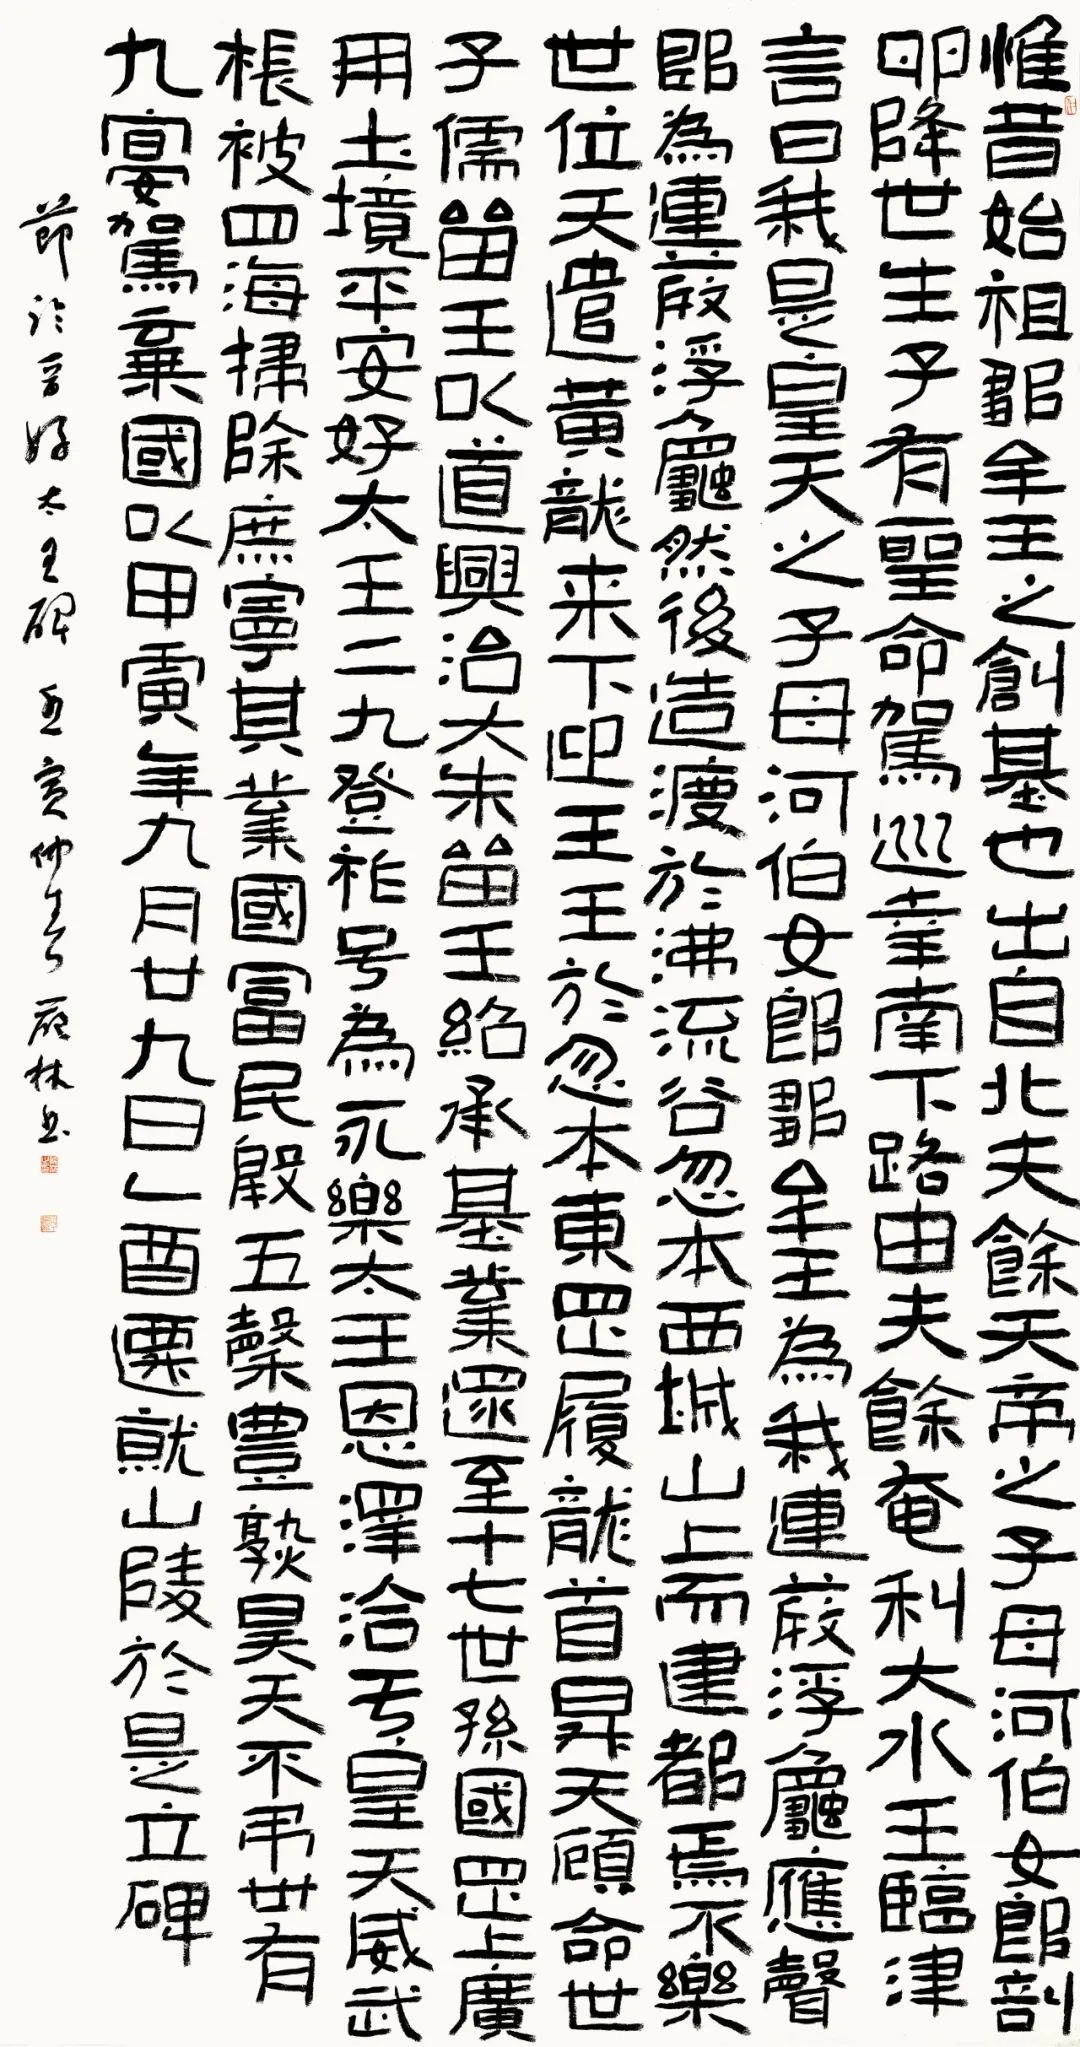 惟昔始祖鄒牟王之創基也出自北夫餘天帝之子母河伯女郎剖
卵降世生子有聖命駕巡幸南下路由夫餘奄利大水王臨津
言曰我是皇天之子母河伯女郎鄒牟王為我連葭浮龜應聲
即為連葭浮龜然後造渡於沸流谷忽本西城山上而建都焉不樂
世位天遣黃龍来下迎王王於忽本東罡履龍首昇天顧命世
子儒留王以道興治大朱留王紹承基業遝至十七世孫國罡上廣
用土境平安好太王二九登祚号為永樂太王恩澤洽于皇天威武
棖被四海掃除庶寧其業國富民殷五穀豐熟昊天不弔卅有
九宴駕棄國以甲寅年九月廿九日乙酉遷就山陵於是立碑
節於晉好太王碑 壬寅仲春 林書